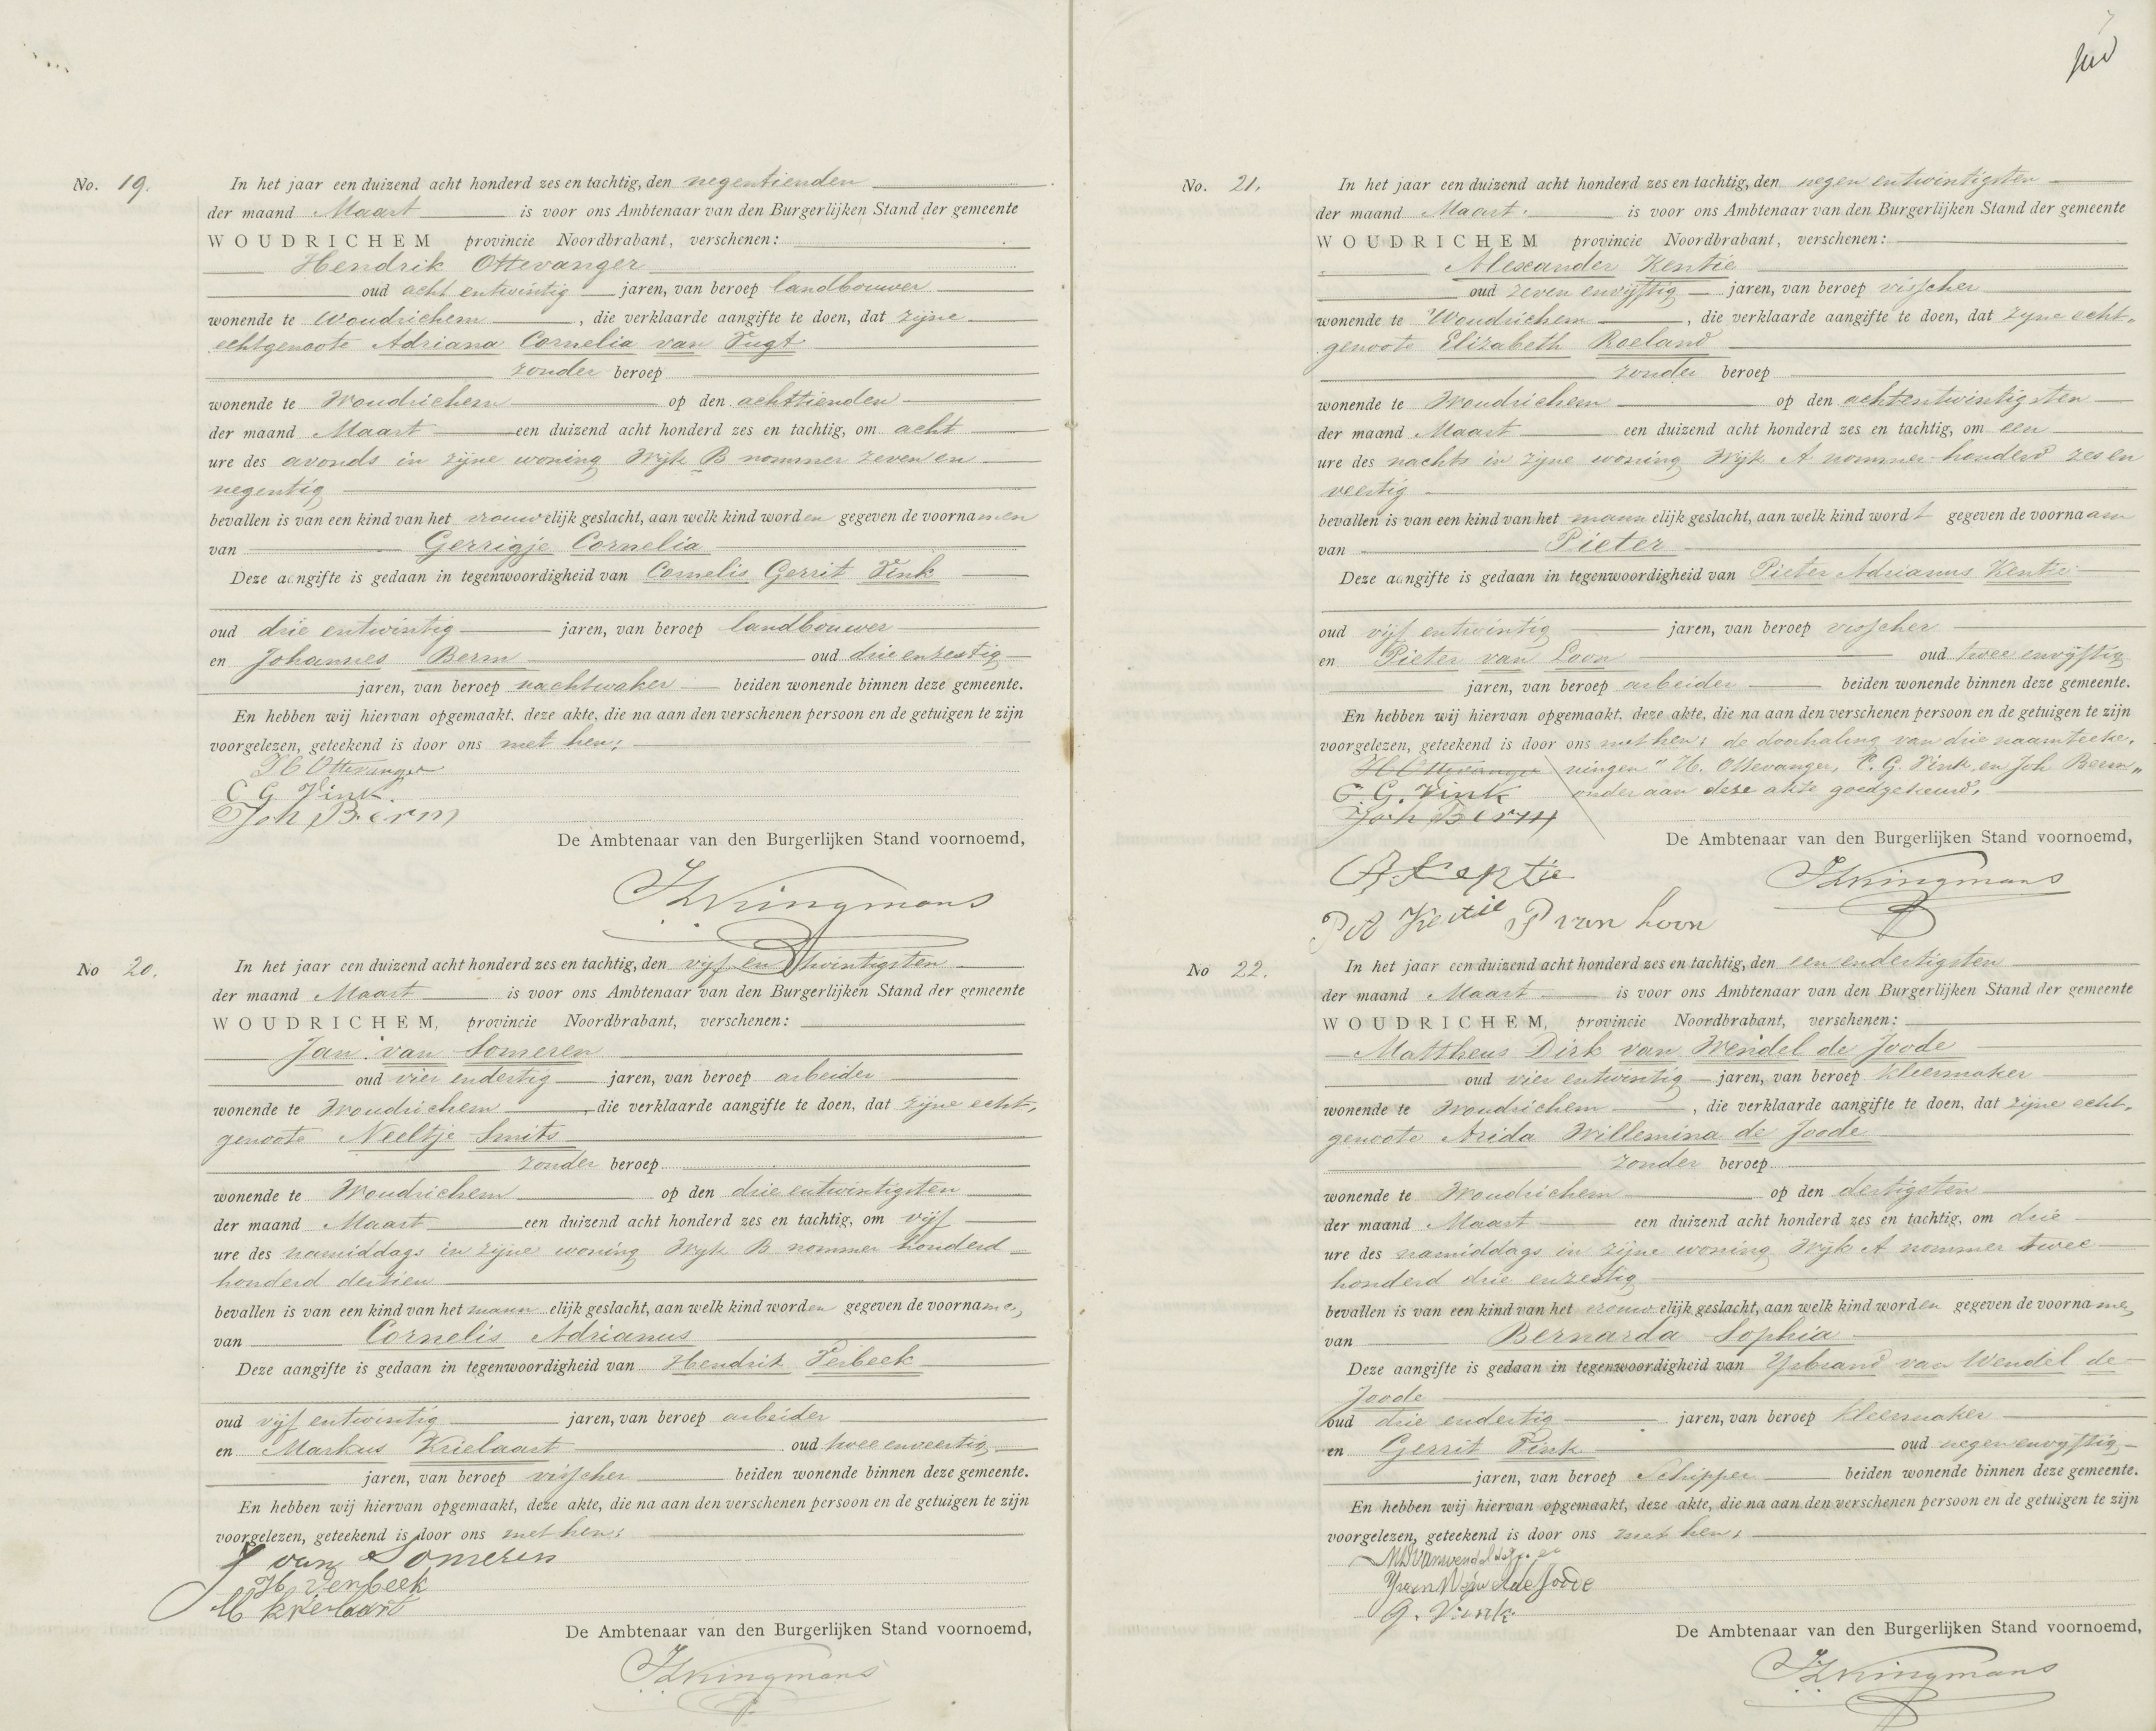 No. 19. In het jaar een duizend acht honderd zes en tachtig, den negentienden
der maand Maart is voor ons Ambtenaar van den Burgerlijken Stand der gemeente
WOUDRICHEM provincie Noordbrabant, verschenen:
Hendrik Ottevanger
oud acht entwintig jaren, van beroep landbouwer
wonende te Woudrichem, die verklaarde aangifte te doen, dat zijne
echtgenoote Adriana Cornelia van Tugt
zonder beroep
wonende te Woudrichem op den achttienden
der maand Maart een duizend acht honderd zes en tachtig, om acht
ure des avonds in zijne woning Wijk B nommer zeven en
negentig
bevallen is van een kind van het vrouwelijk geslacht, aan welk kind worden gegeven de voornamen
van Gerrigje Cornelia
Deze aangifte is gedaan in tegenwoordigheid van Cornelis Gerrit Vink
oud drie entwintig jaren, van beroep landbouwer
en Johannes Berm oud drie enzestig
jaren, van beroep nachtwaker beiden wonende binnen deze gemeente.
En hebben wij hiervan opgemaakt. deze akte, die na aan den verschenen persoon en de getuigen te zijn
voorgelezen, geteekend is door ons met hen;
H Ottevanger
C G Vink.
Joh Berm
De Ambtenaar van den Burgerlijken Stand voornoemd,
No 20. In het jaar een duizend acht honderd zes en tachtig, den vijf en twintigsten
der maand Maart is voor ons Ambtenaar van den Burgerlijken Stand der gemeente
WOUDRICHEM, provincie Noordbrabant, verschenen:
Jan van Someren
oud vier endertig jaren, van beroep arbeider
wonende te Woudrichem, die verklaarde aangifte te doen, dat zijne echt,
genoote Neeltje Smits
zonder beroep
wonende te Woudrichem op den drie entwintigsten
der maand Maart een duizend acht honderd zes en tachtig, om vijf
ure des namiddags in zijne woning Wijk B nommer honderd
honderd dertien
bevallen is van een kind van het mannelijk geslacht, aan welk kind worden gegeven de voornamen,
van Cornelis Adrianus
Deze aangifte is gedaan in tegenwoordigheid van Hendrik Verbeek
oud vijf entwintig jaren, van beroep arbeider
en Markus Krielaart oud twee enveertig
jaren, van beroep visscher beiden wonende binnen deze gemeente.
En hebben wij hiervan opgemaakt, deze akte, die na aan den verschenen persoon en de getuigen te zijn
voorgelezen, geteekend is door ons met hen;
J van Someren
H verbeek
M krielaart
De Ambtenaar van den Burgerlijken Stand voornoemd,
No. 21. In het jaar een duizend acht honderd zes en tachtig, den negen entwintigsten
der maand Maart. is voor ons Ambtenaar van den Burgerlijken Stand der gemeente
WOUDRICHEM provincie Noordbrabant, verschenen:
Alexander Kentie
oud zeven envijftig jaren, van beroep visscher
wonende te Woudrichem, die verklaarde aangifte te doen, dat zijne echt,
genoote Elizabeth Roeland
zonder beroep
wonende te Woudrichem op den achtentwintigsten
der maand Maart een duizend acht honderd zes en tachtig, om een
ure des nachts in zijne woning Wijk A nommer honderd zes en
veertig
bevallen is van een kind van het mannelijk geslacht, aan welk kind wordt gegeven de voornaam
van Pieter
Deze aangifte is gedaan in tegenwoordigheid van Pieter Adrianus Kentie
oud vijf entwintig jaren, van beroep visscher
en Pieter van Loon oud twee envijftig
jaren, van beroep arbeider beiden wonende binnen deze gemeente.
En hebben wij hiervan opgemaakt. deze akte, die na aan den verschenen persoon en de getuigen te zijn
voorgelezen, geteekend is door ons met hen; de doorhaling van drie naamteeke,
H Ottevanger ningen "H. Ottevanger, C. G. Vink, en Joh Berm"
C. G. Vink onder aan deze akte goedgekeurd.
Joh Berm
De Ambtenaar van den Burgerlijken Stand voornoemd,
P A Kentie P van Loon
No 22. In het jaar een duizend acht honderd zes en tachtig, den een endertigsten
der maand Maart is voor ons Ambtenaar van den Burgerlijken Stand der gemeente
WOUDRICHEM, provincie Noordbrabant, verschenen:
Mattheus Dirk van Wendel de Joode
oud vier entwintig jaren, van beroep kleermaker
wonende te Woudrichem, die verklaarde aangifte te doen, dat zijne echt,
genoote Arida Willemina de Joode
zonder beroep
wonende te Woudrichem op den dertigsten
der maand Maart een duizend acht honderd zes en tachtig, om drie
ure des namiddags in zijne woning Wijk A nommer twee
honderd drie enzestig
bevallen is van een kind van het vrouwelijk geslacht, aan welk kind worden gegeven de voornamen
van Bernarda Sophia
Deze aangifte is gedaan in tegenwoordigheid van Ysbrand van Wendel de
Joode
oud drie endertig jaren, van beroep kleermaker
en Gerrit Vink oud negen envijftig
jaren, van beroep Schipper beiden wonende binnen deze gemeente.
En hebben wij hiervan opgemaakt, deze akte, die na aan den verschenen persoon en de getuigen te zijn
voorgelezen, geteekend is door ons met hen;
G. Vink
De Ambtenaar van den Burgerlijken Stand voornoemd,